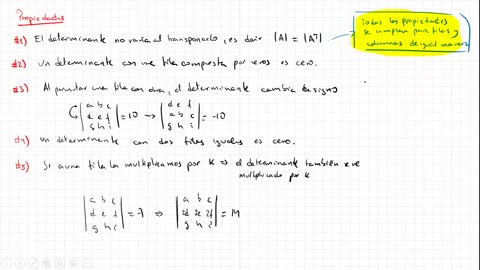 Propiedades
#1) El determinante no varía al transponerlo, es decir |A| = |Aᵀ|
Todas las propiedades
se cumplen para filas y
columnas de igual manera
#2) un determinante con una fila compuesta por ceros es cero.
#3) Al permutar una fila con otra, el determinante cambia de signo
|a b c| |d e f|
|d e f| = 10 → |a b c| = -10
|g h i| |g h i|
#4) un determinante con dos filas iguales es cero.
#5) Si a una fila la multiplicamos por K ⇒ el determinante también se ve
multiplicado por K
|a b c| |a b c|
|d e f| = 7 ⇒ |2d 2e 2f| = 14
|g h i| |g h i|